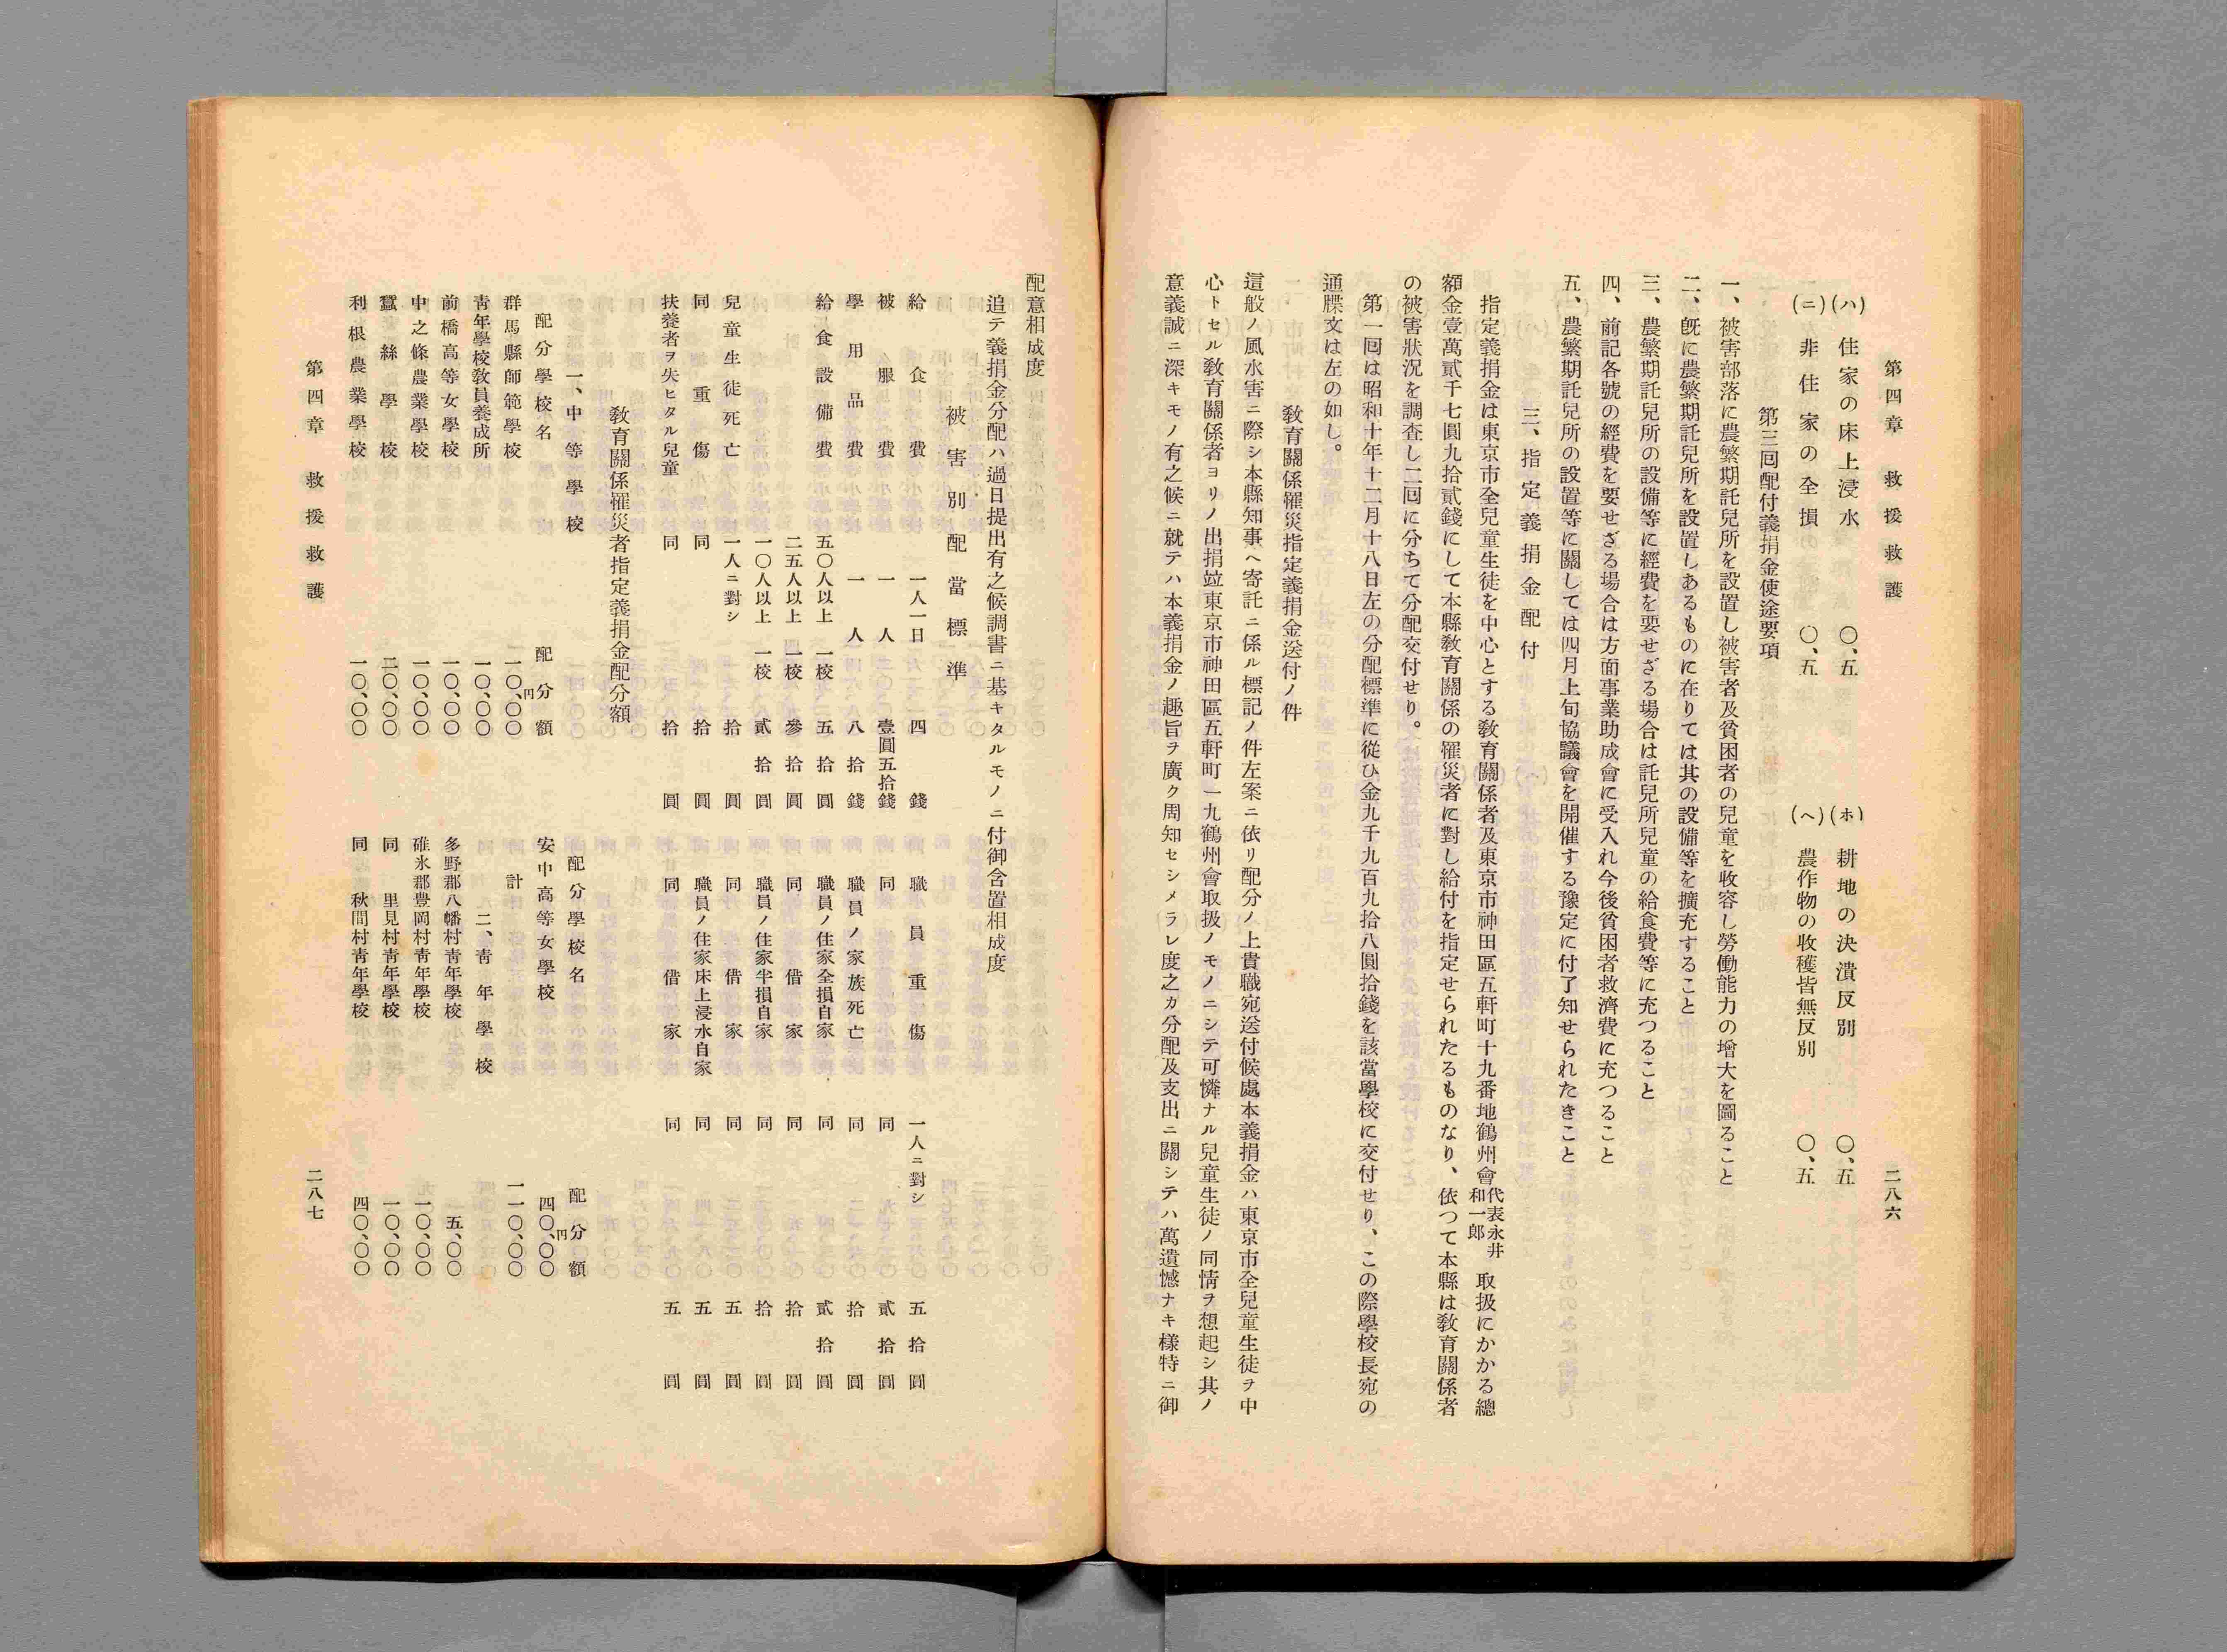 第四章　救援救護
二八六
(ハ)　住家の床上浸水　〇、五
(ホ)　耕地の決潰反別　〇、五
(ニ)　非住家の全損　〇、五
(ヘ)　農作物の收穫皆無反別　〇、五
第三囘配付義捐金使途要項
一、被害部落に農繁期託兒所を設置し被害者及貧困者の兒童を收容し勞働能力の增大を圖ること
二、既に農繁期託兒所を設置しあるものに在りては其の設備等を擴充すること
三、農繁期託兒所の設備等に經費を要せざる場合は託兒所兒童の給食費等に充つること
四、前記各號の經費を要せざる場合は方面事業助成會に受入れ今後貧困者救濟費に充つること
五、農繁期託兒所の設置等に關しては四月上旬協議會を開催する豫定に付了知せられたきこと
三、指定義捐金配付
指定義捐金は東京市全兒童生徒を中心とする敎育關係者及東京市神田區五軒町十九番地鶴州會代表永井和一郎　取扱にかかる總
額金壹萬貳千七圓九拾貳錢にして本縣敎育關係の罹災者に對し給付を指定せられたるものなり、依つて本縣は敎育關係者
の被害狀況を調査し二囘に分ちて分配交付せり。
第一囘は昭和十年十二月十八日左の分配標準に從ひ金九千九百九拾八圓拾錢を該當學校に交付せり、この際學校長宛の
通牒文は左の如し。
敎育關係罹災指定義捐金送付ノ件
這般ノ風水害ニ際シ本縣知事ヘ寄託ニ係ル標記ノ件左案ニ依リ配分ノ上貴職宛送付候處本義捐金ハ東京市全兒童生徒ヲ中
心トセル敎育關係者ヨリノ出捐竝東京市神田區五軒町一九鶴州會取扱ノモノニシテ可憐ナル兒童生徒ノ同情ヲ想起シ其ノ
意義誠ニ深キモノ有之候ニ就テハ本義捐金ノ趣旨ヲ廣ク周知セシメラレ度之カ分配及支出ニ關シテハ萬遺憾ナキ樣特ニ御
配意相成度
追テ義捐金分配ハ過日提出有之候調書ニ基キタルモノニ付御含置相成度
被害別配當標準
給食費　一人一日　四錢　職員重傷　一人ニ對シ　五拾圓
被服費　一人　壹圓五拾錢　同　同　貳拾圓
學用品費　一人　八拾錢　職員ノ家族死亡　同　拾圓
給食設備費　五〇人以上　一校　五拾圓　職員ノ住家全損自家　同　貳拾圓
二五人以上　一校　參拾圓　同　借家　同　拾圓
一〇人以上　一校　貳拾圓　職員ノ住家半損自家　同　拾圓
兒童生徒死亡　一人ニ對シ　拾圓　同　借家　同　五圓
同　重傷　同　拾圓　職員ノ住家床上浸水自家　同　五圓
扶養者ヲ失ヒタル兒童　同　拾圓　同　借家　同　五圓
敎育關係罹災者指定義捐金配分額
一、中等學校
配分學校名　配分額
群馬縣師範學校　一〇、〇〇円
靑年學校敎員養成所　一〇、〇〇
前橋高等女學校　一〇、〇〇
中之條農業學校　一〇、〇〇
蠶絲學校　二〇、〇〇
利根農業學校　一〇、〇〇
配分學校名　配分額
安中高等女學校　四〇、〇〇円
計　一一〇、〇〇
二、靑年學校
多野郡八幡村靑年學校　五、〇〇
碓氷郡豊岡村靑年學校　一〇、〇〇
同　里見村靑年學校　一〇、〇〇
同　秋間村靑年學校　四〇、〇〇
第四章　救援救護
二八七